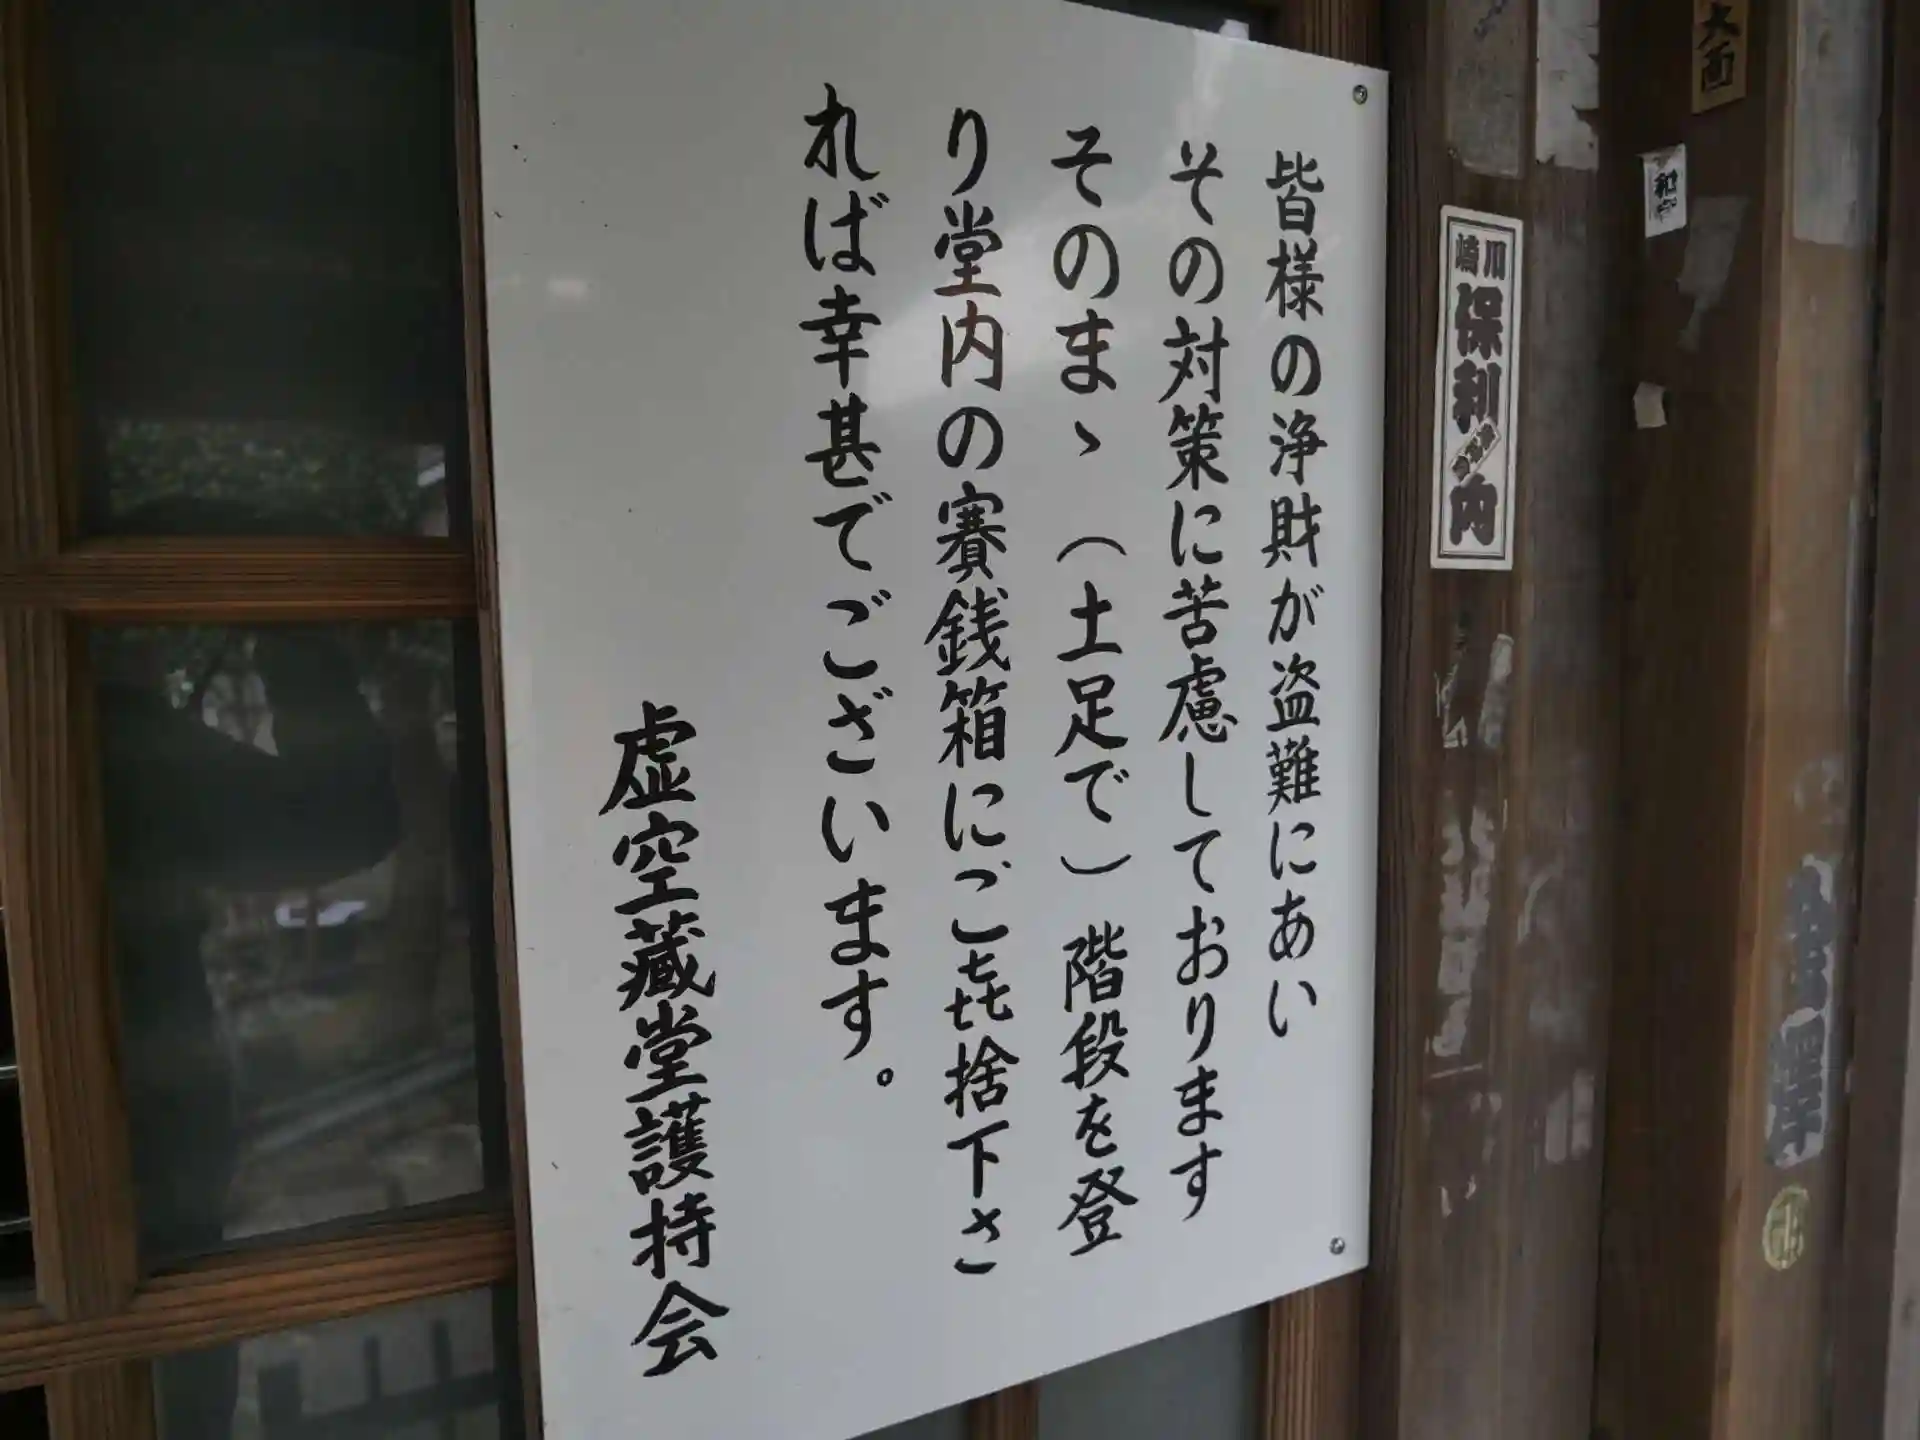 皆様の浄財が盗難にあい
その対策に苦慮しております
そのまゝ（土足で）階段を登
り堂内の賽銭箱にご㐂捨下さ
れば幸甚でございます。
虚空蔵堂護持会
川崎
保利
内